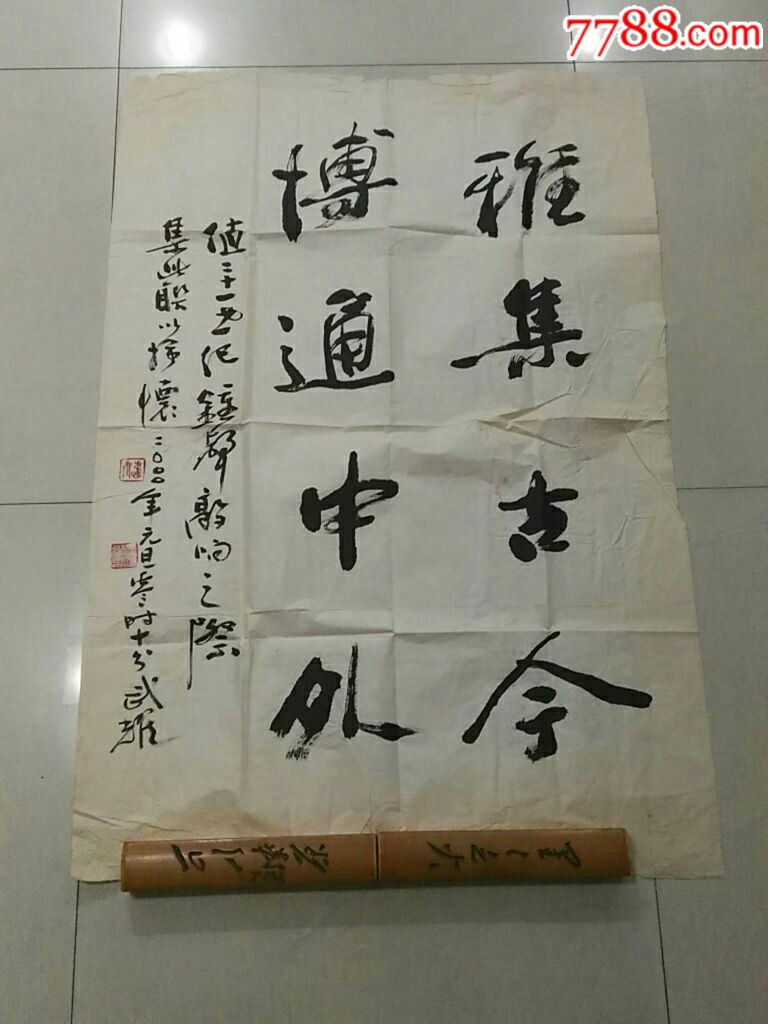 7788.com
雅集古今
博通中外
值二十一世纪鐘聲敲响之际
集此联以抒懷二〇〇〇年元旦零时十分武耀